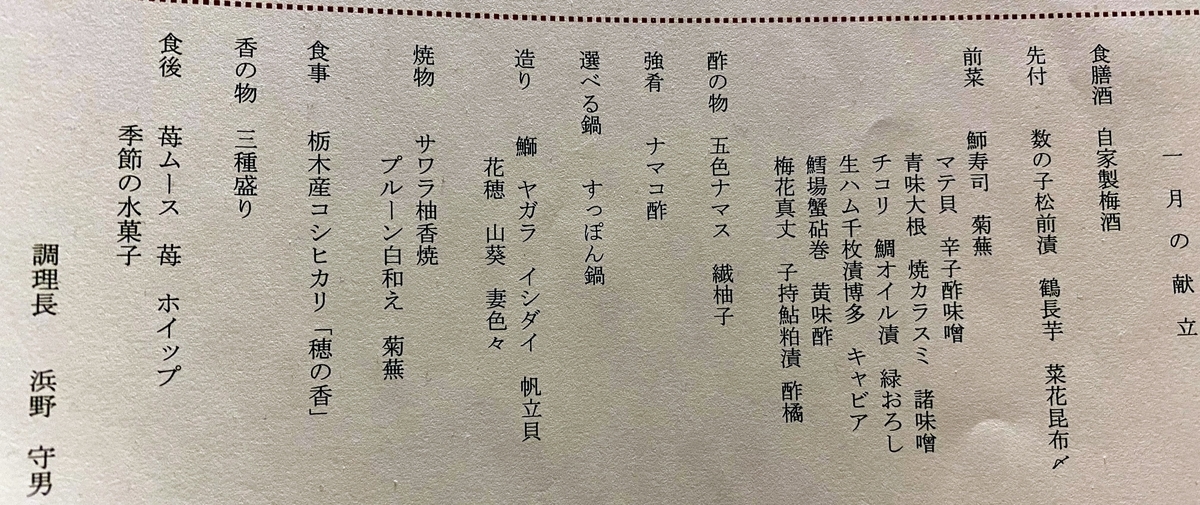 一月の献立
食膳酒 自家製梅酒
先付 数の子松前漬 鶴長芋 菜花昆布〆
前菜 鰤寿司 菊蕪
マテ貝 辛子酢味噌
青味大根 焼カラスミ 諸味噌
チコリ 鯛オイル漬 緑おろし
生ハム千枚漬博多 キャビア
鱈場蟹砧巻 黄味酢
梅花真丈 子持鮎粕漬 酢橘
酢の物 五色ナマス 繊柚子
強肴 ナマコ酢
選べる鍋 すっぽん鍋
造り 鰤 ヤガラ イシダイ 帆立貝
花穂 山葵 妻色々
焼物 サワラ柚香焼
プルーン白和え 菊蕪
食事 栃木産コシヒカリ「穂の香」
香の物 三種盛り
食後 苺ムース 苺 ホイップ
季節の水菓子
調理長 浜野 守男